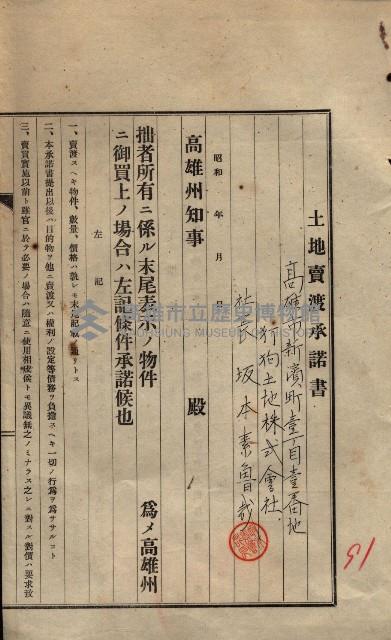 土地賣渡承諾書
高雄市新濱町壹丁目壹番地
打狗土地株式會社
社長 坂本素魯哉
昭和 年 月 日
高雄州知事 殿
為メ高雄州
拙者所有ニ係ル末尾表示ノ物件
ニ御買上ノ場合ハ左記條件承諾候也
左記
一、賣渡スヘキ物件、數量、價格ハ孰レモ末尾記載ノ通リトス
二、本承諾書提出以後ハ目的物ヲ他ニ賣渡又ハ權利ノ設定等債務ヲ負擔スヘキ一切ノ行為ヲ為ササルコト
三、賣買實施以前ト雖官ニ於テ必要ノ場合ハ隨意ニ使用相成候トモ異議無之ノミナラス之レニ對スル對價ハ要求致
高雄市立歷史博物館
KAOHSIUNG MUSEUM OF HISTORY
19